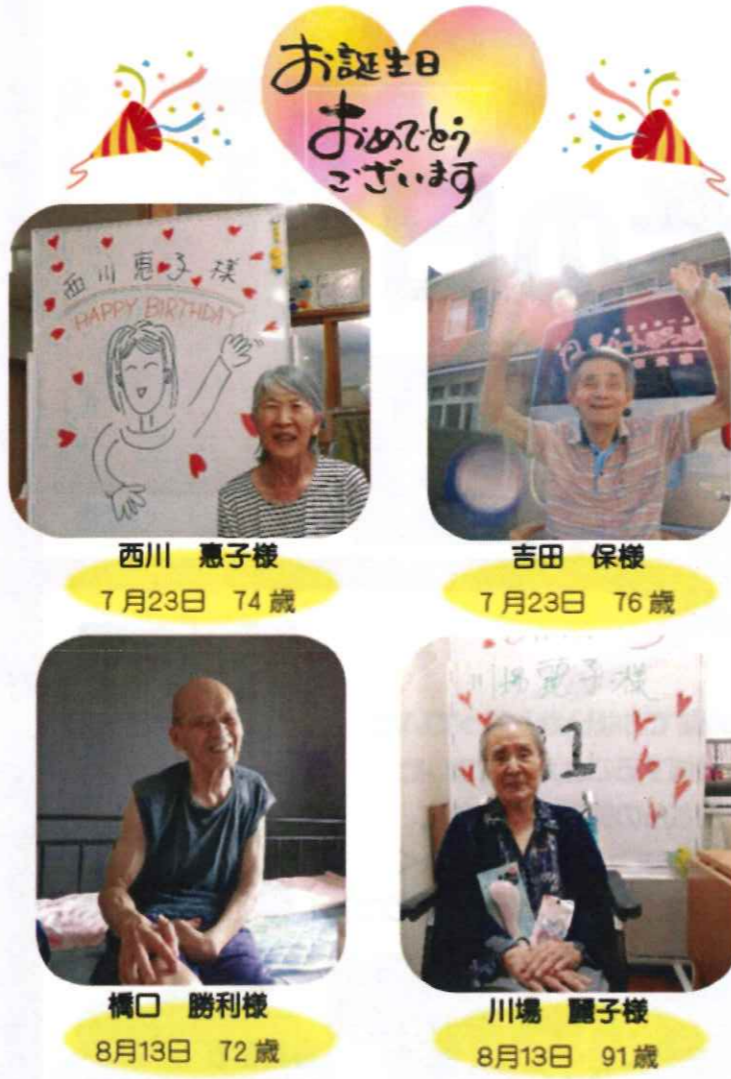 お誕生日
おめでとう
ございます
西川恵子様
HAPPY BIRTHDAY
西川 惠子様
7月23日 74歳
吉田 保様
7月23日 76歳
川場麗子様
橋口 勝利様
8月13日 72歳
川場 麗子様
8月13日 91歳